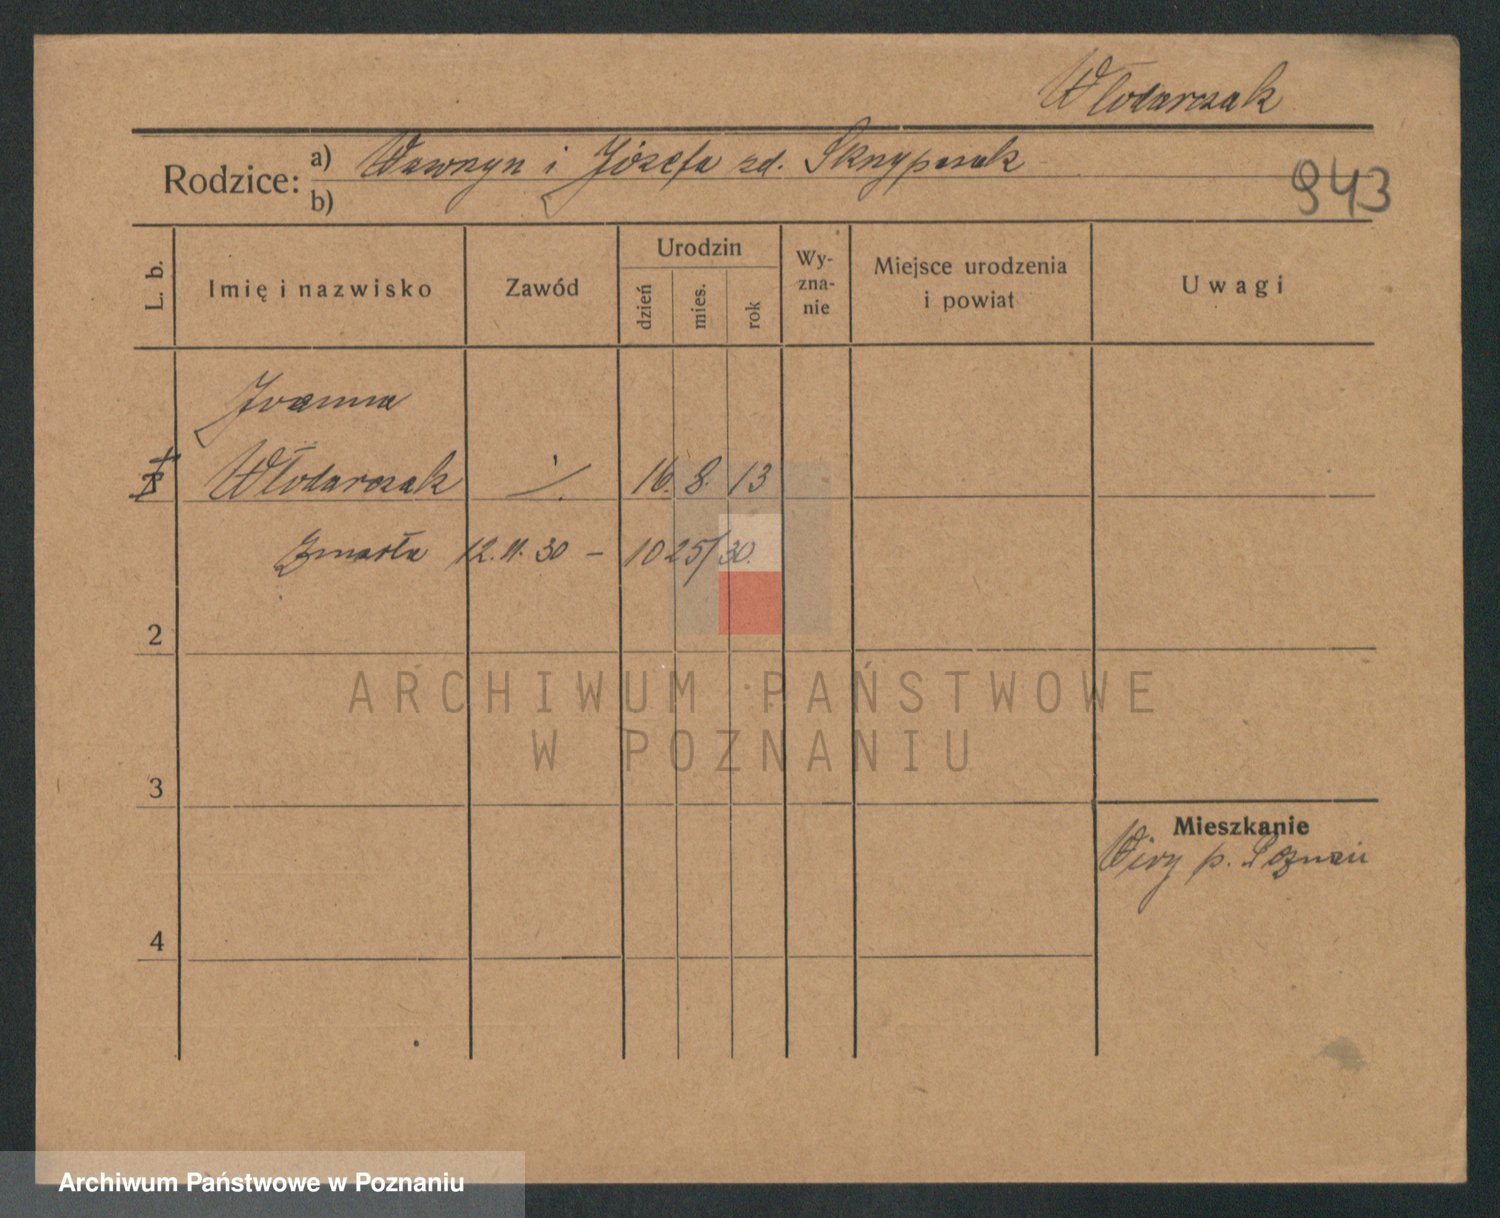 Włodarczak
Rodzice: a) Wawrzyn i Józefa zd. Skrzypczak
b)
943
L. b.
Imię i nazwisko
Zawód
Urodzin
dzień
mies.
rok
Wy-
zna-
nie
Miejsce urodzenia
i powiat
Uwagi
Joanna
Włodarczak ./. 16. 8. 13
Zmarła 12. 11. 30 – 1025/30.
2
3
4
Mieszkanie
Wiry p. Poznań
ARCHIWUM PAŃSTWOWE
W POZNANIU
Archiwum Państwowe w Poznaniu